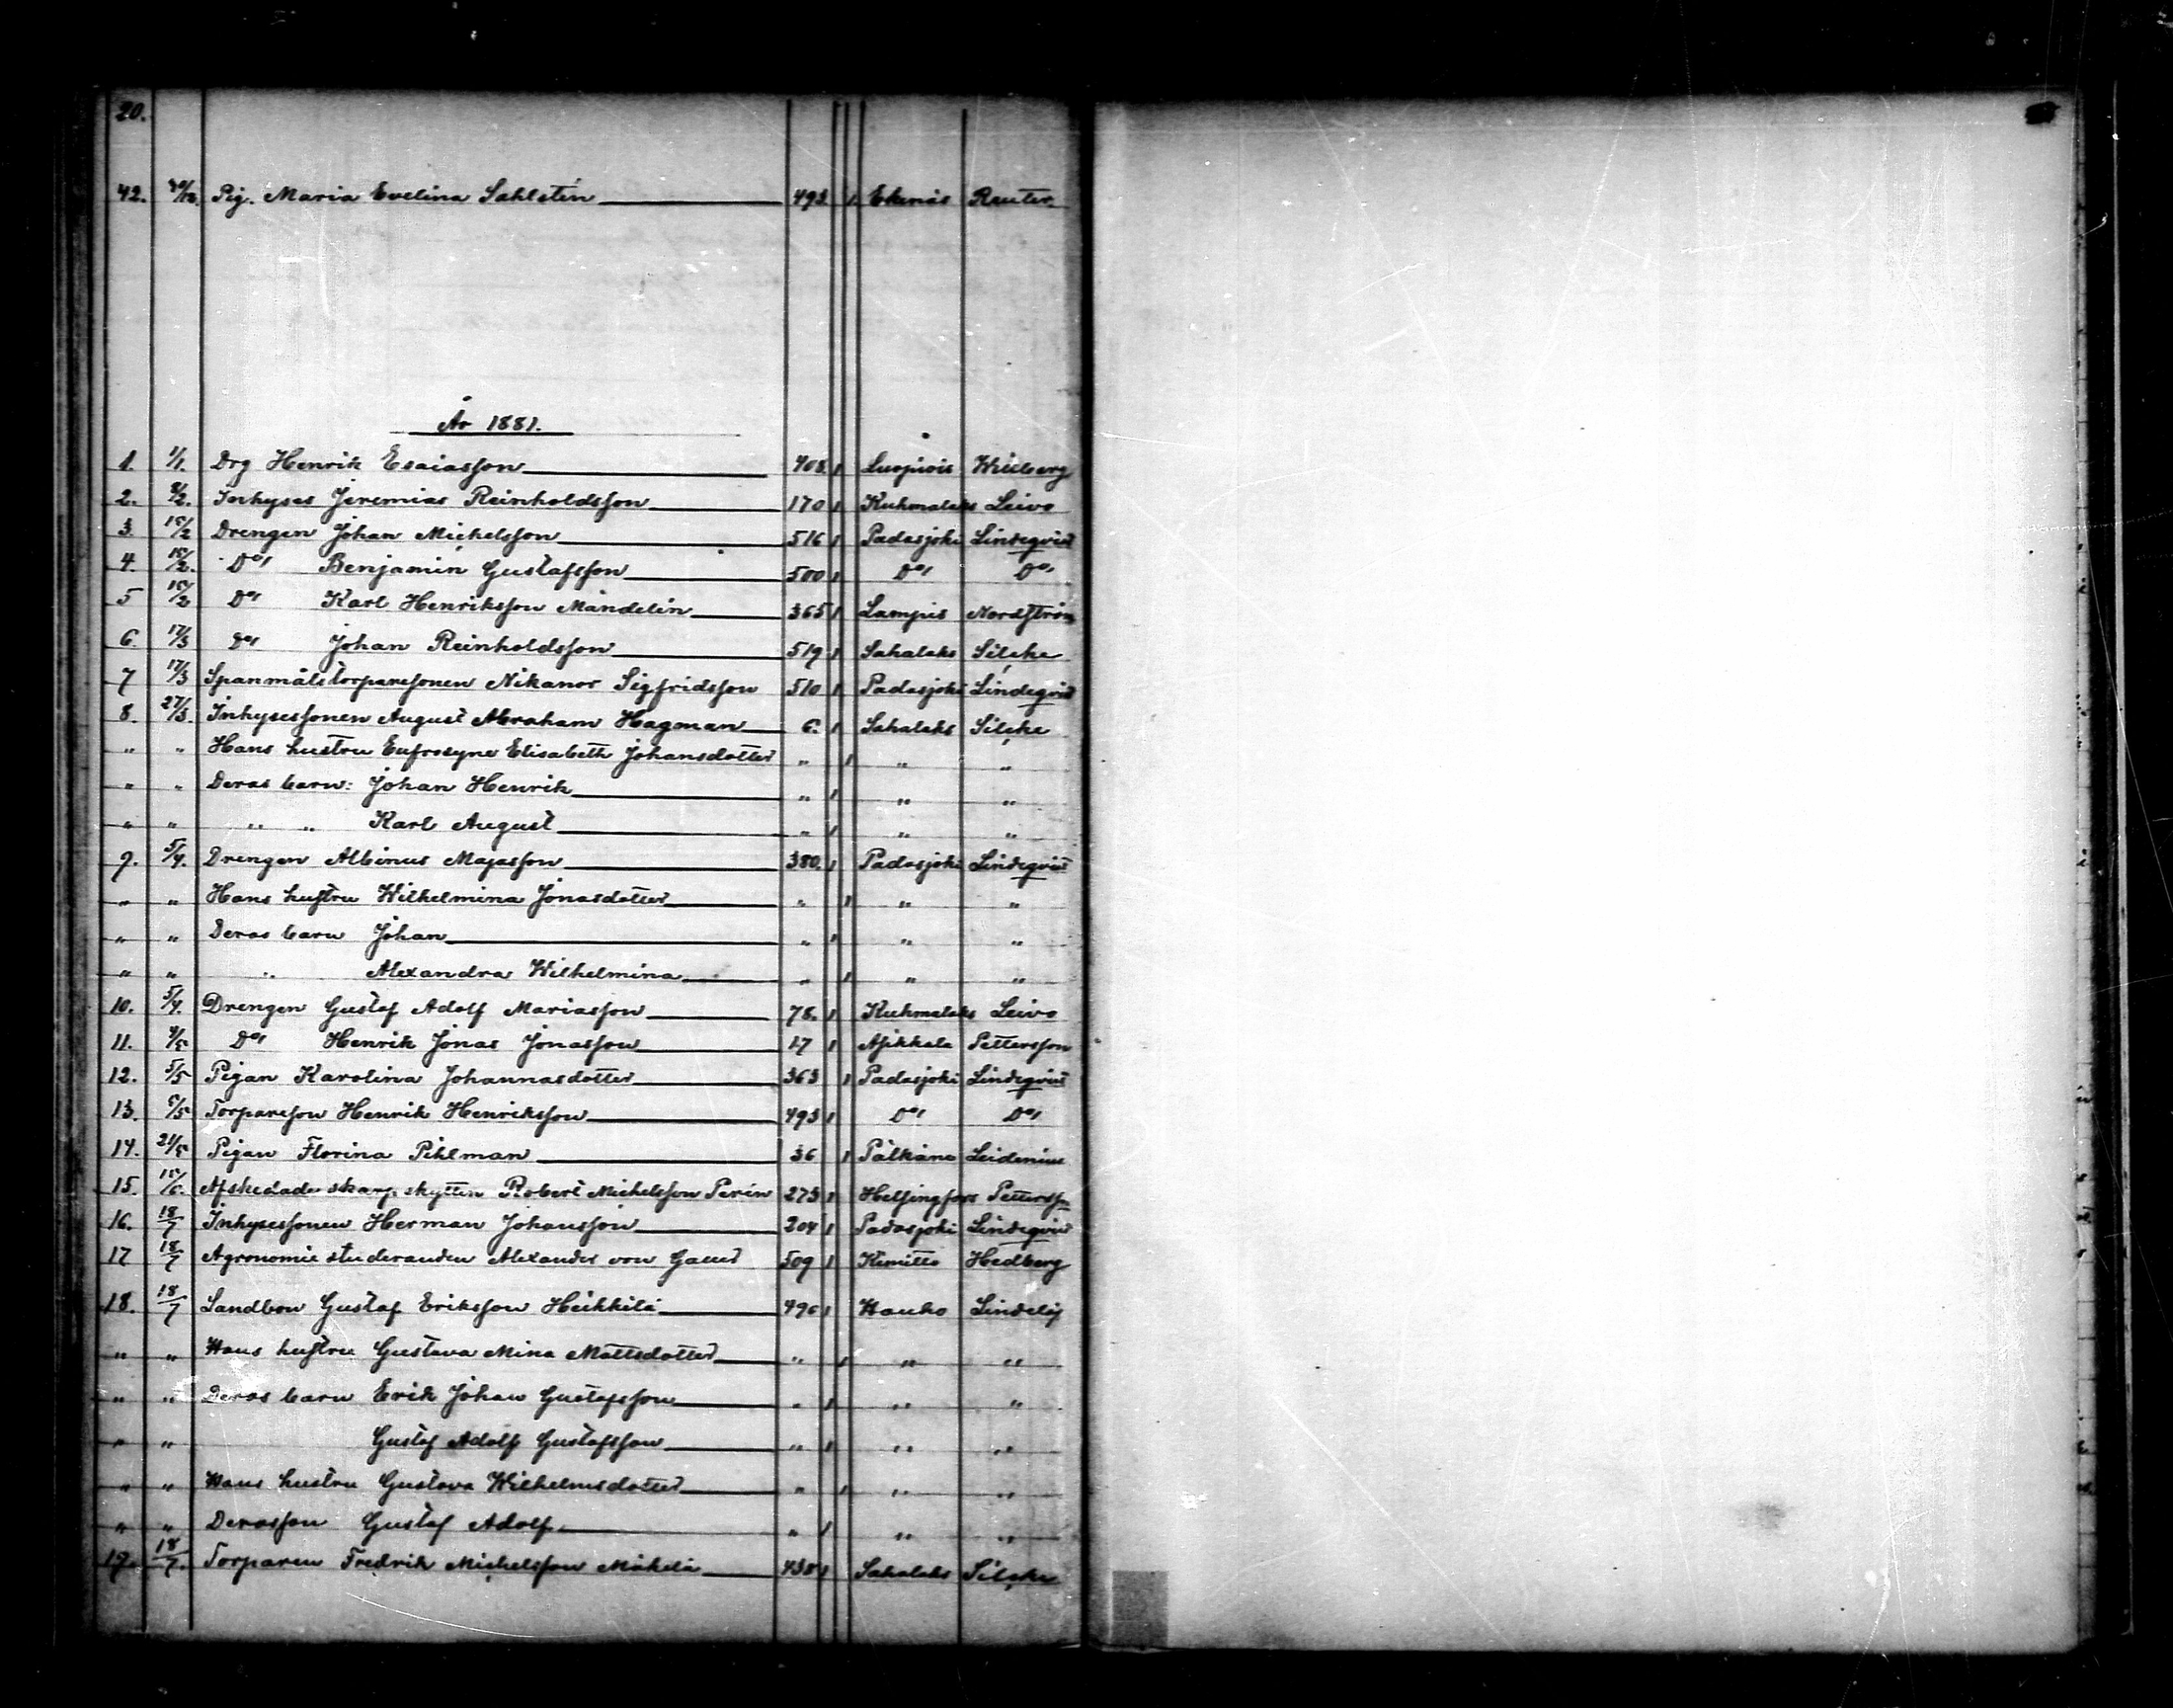 20.
42. Pig. Maria Evelina Sahlstén 493 1 Ekenäs Reuter.
År 1881.
1. 1/1. Drg Henrik Esaiasson 408. 1 Luopiois
2. 8/2. Inhyses Jeremias Reinholdsson 170 1 Kuhmalaks Leivo
3. 15/2 Drengen Johan Michelsson 516 1 Padasjoki Lindeqvist
4. 15/2. Do/ Benjamin Gustafsson 500 1 Do/ Do/
5 15/2 Do/ Karl Henriksson Mandelin 365 1 Lampis Nordström
6. 17/3 Do/ Johan Reinholdsson 519 1 Sahalaks Silcke
7 17/3 Spanmålstorparesonen Nikanor Sigfridsson 510 1 Padasjoki Lindeqvist
8. 27/3. Inhysessonen August Abraham Hagman 6. 1 Sahalaks Silcke
" " Hans hustru Eufrosyne Elisabeth Johansdotter " 1 " "
" " Deras barn: Johan Henrik " 1 " "
" " " " Karl August " 1 " "
9. 5/4. Drengen Albinus Majasson 380. 1 Padasjoki Lindeqvist
" " Hans hustru Wilhelmina Jonasdotter " 1 " "
" " Deras barn Johan " 1 " "
" " " Alexandra Wilhelmina " 1 " "
10. 5/4. Drengen Gustaf Adolf Mariasson 78. 1 Kuhmalaks Leivo
11. 4/5 Do/ Henrik Jonas Jonasson 17 1 Asikkala Pettersson
12. 5/5 Pigan Karolina Johannasdotter 363 1 Padasjoki Lindeqvist
13. 5/5 Torpareson Henrik Henriksson 493 1 Do/ Do/
14. 21/5 Pigan Florina Pihlman 36 1 Pälkäne Leidenius
15. 15/6. Afskedade skarpskytten Robert Michelsson Perin 273 1 Helsingfors Pettersson
16. 18/7 Inhysessonen Herman Johansson 204 1 Padasjoki Lindeqvist
17 18/7 Agronomie studeranden Alexander von 509 1 Kimitto Hedberg
18. 18/7 Landbon Gustaf Eriksson Heikkilä 496 1 Hauho Lindelöf
" " Hans hustru Gustava Mina Mattsdotter " 1 " "
" " Deras barn Erik Johan Gustafsson " 1 " "
" " Gustaf Adolf Gustafsson " 1 " "
" " Hans hustru Gustava Wilhelmsdotter " 1 " "
" " Derasson Gustaf Adolf " 1 " "
19. 18/7. Torparen Fredrik Michelsson Mäkelä 438 1 Sahalaks Silcke